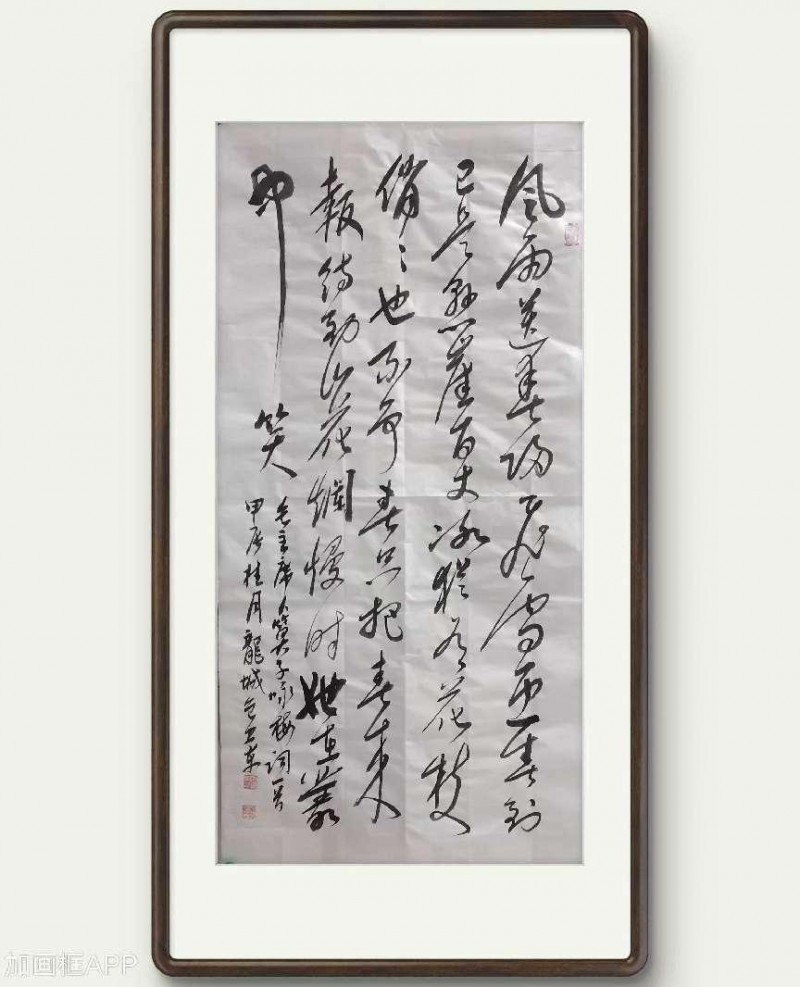 风雨送春歸飛雪迎春到
已是懸崖百丈冰猶有花枝
俏々也不争春只把春来
報待到山花爛慢时她在叢
中笑
毛主席卜算子咏梅词一首
甲辰桂月龍城
加画框APP